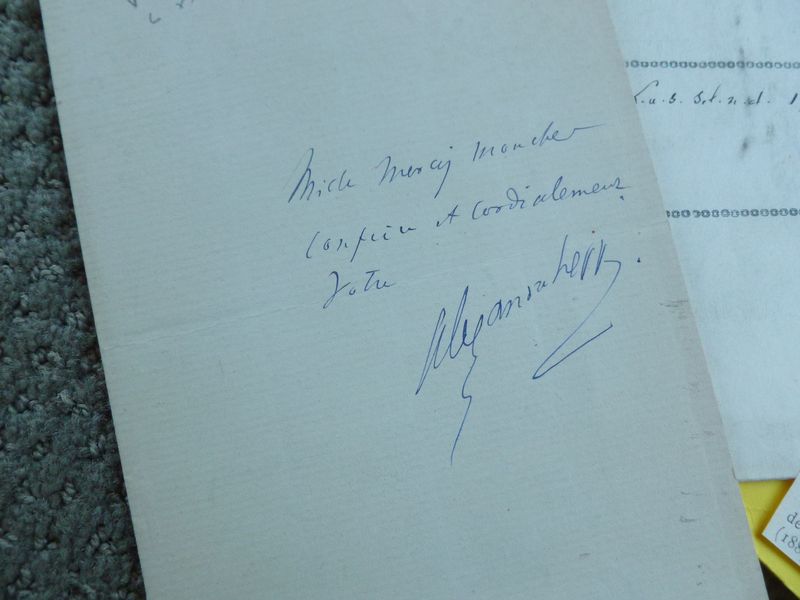 Mille Mercis mon cher
Confrère et Cordialement
Votre
Alexandre Hepp.
L.a.s. S.l.n.d. 1
de
(188